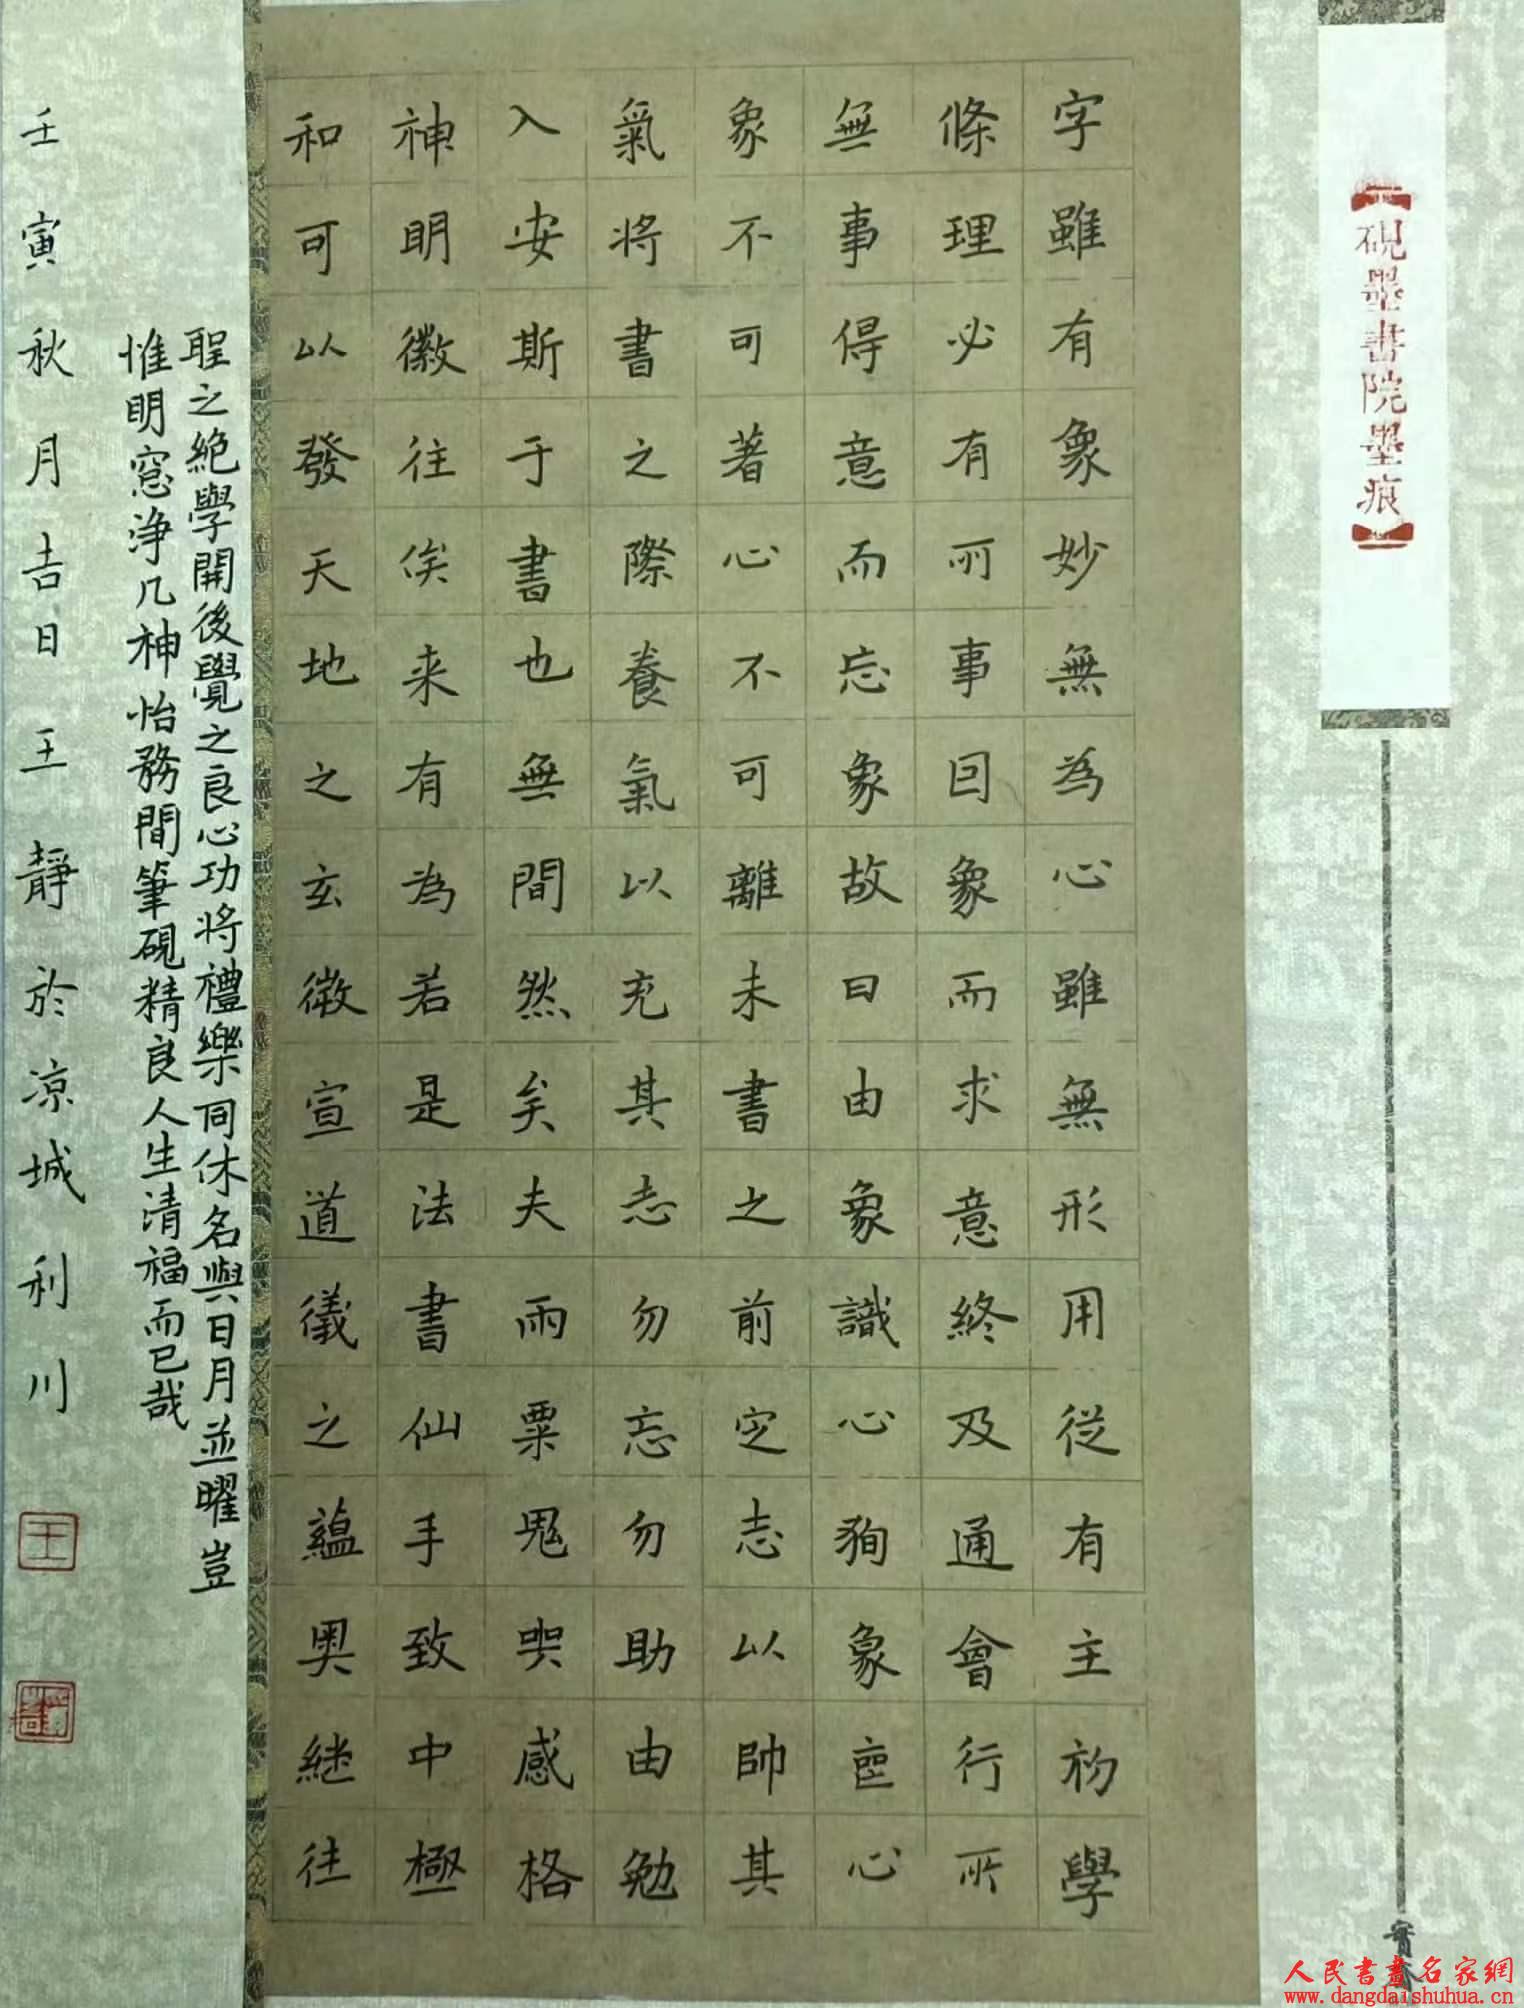 【硯墨書院墨痕】
字雖有象妙無為心雖無形用從有主初學
條理必有所事因象而求意終及通會行所
無事得意而忘象故曰由象識心狥象喪心
象不可著心不可離未書之前定志以帥其
氣將書之際養氣以充其志勿忘勿助由勉
入安斯于書也無間然矣夫雨粟鬼哭感格
神明徽往俟来有為若是法書仙手致中極
和可以發天地之玄微宣道儀之蘊奥継往
聖之絶學開後覺之良心功将禮樂同休名與日月並曜豈
惟明窓浄几神怡務間筆硯精良人生清福而已哉
壬寅秋月吉日王靜於凉城利川
王
人民書畫名家網
www.dangdaishuhua.cn